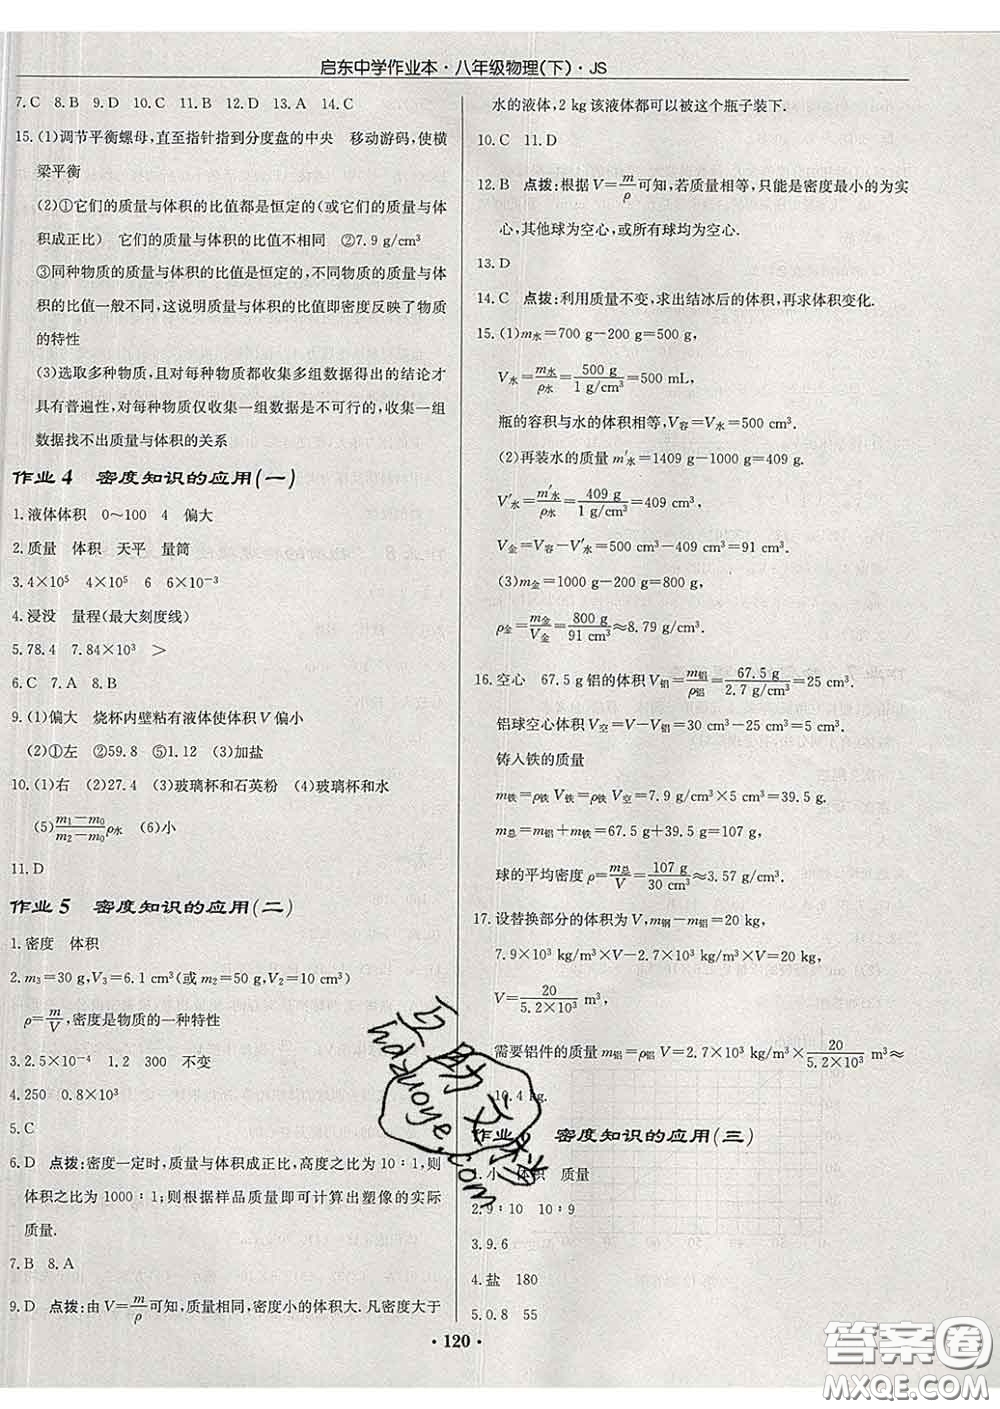 启东中学作业本·八年级物理(下)·JS
7.C 8.B 9.D 10.C 11.B 12.D 13.A 14.C
15.(1)调节平衡螺母,直至指针指到分度盘的中央 移动游码,使横
梁平衡
(2)①它们的质量与体积的比值都是恒定的(或它们的质量与体
积成正比) 它们的质量与体积的比值不相同 ②7.9 g/cm³
③同种物质的质量与体积的比值是恒定的,不同物质的质量与体
积的比值一般不同,这说明质量与体积的比值即密度反映了物质
的特性
(3)选取多种物质,且对每种物质都收集多组数据得出的结论才
具有普遍性,对每种物质仅收集一组数据是不可行的,收集一组
数据找不出质量与体积的关系
作业4 密度知识的应用(一)
1.液体体积 0～100 4 偏大
2.质量 体积 天平 量筒
3.4×10⁵ 4×10⁵ 6 6×10⁻³
4.浸没 量程(最大刻度线)
5.78.4 7.84×10³ >
6.C 7.A 8.B
9.(1)偏大 烧杯内壁粘有液体使体积V偏小
(2)①左 ②59.8 ⑤1.12 ③加盐
10.(1)右 (2)27.4 (3)玻璃杯和石英粉 (4)玻璃杯和水
(5)(m₁−m₀)/(m₂−m₀)ρ水 (6)小
11.D
作业5 密度知识的应用(二)
1.密度 体积
2.m₃=30 g,V₃=6.1 cm³(或m₂=50 g,V₂=10 cm³)
ρ=m/V,密度是物质的一种特性
3.2.5×10⁻⁴ 1.2 300 不变
4.250 0.8×10³
5.C
6.D 点拨:密度一定时,质量与体积成正比,高度之比为10∶1,则
体积之比为1000∶1;则根据样品质量即可计算出塑像的实际
质量.
7.B 8.A
9.D 点拨:由V=m/ρ可知,质量相同,密度小的体积大.凡密度大于
水的液体,2 kg该液体都可以被这个瓶子装下.
10.C 11.D
12.B 点拨:根据V=m/ρ可知,若质量相等,只能是密度最小的为实
心,其他球为空心,或所有球均为空心.
13.D
14.C 点拨:利用质量不变,求出结冰后的体积,再求体积变化.
15.(1)m水=700 g−200 g=500 g,
V水=m水/ρ水=500 g/1 g/cm³=500 mL,
瓶的容积与水的体积相等,V容=V水=500 cm³.
(2)再装水的质量m′水=1409 g−1000 g=409 g,
V′水=m′水/ρ水=409 g/1 g/cm³=409 cm³,
V金=V容−V′水=500 cm³−409 cm³=91 cm³.
(3)m金=1000 g−200 g=800 g,
ρ金=m金/V金=800 g/91 cm³≈8.79 g/cm³.
16.空心 67.5 g铝的体积V铝=m铝/ρ铝=67.5 g/2.7 g/cm³=25 cm³.
铝球空心体积V空=V−V铝=30 cm³−25 cm³=5 cm³.
铸入铁的质量
m铁=ρ铁V铁=ρ铁V空=7.9 g/cm³×5 cm³=39.5 g.
m总=m铝+m铁=67.5 g+39.5 g=107 g,
球的平均密度ρ=m总/V=107 g/30 cm³≈3.57 g/cm³.
17.设替换部分的体积为V,m钢−m铝=20 kg,
7.9×10³ kg/m³×V−2.7×10³ kg/m³×V=20 kg,
V=20/5.2×10³ m³,
需要铝件的质量m铝=ρ铝V=2.7×10³ kg/m³×20/5.2×10³ m³≈
10.4 kg.
作业 密度知识的应用(三)
1.小 体积 质量
2.9∶10 10∶9
3.9.6
4.盐 180
5.0.8 55
·120·
hdzuoye.com
答案圈
MXQE.COM